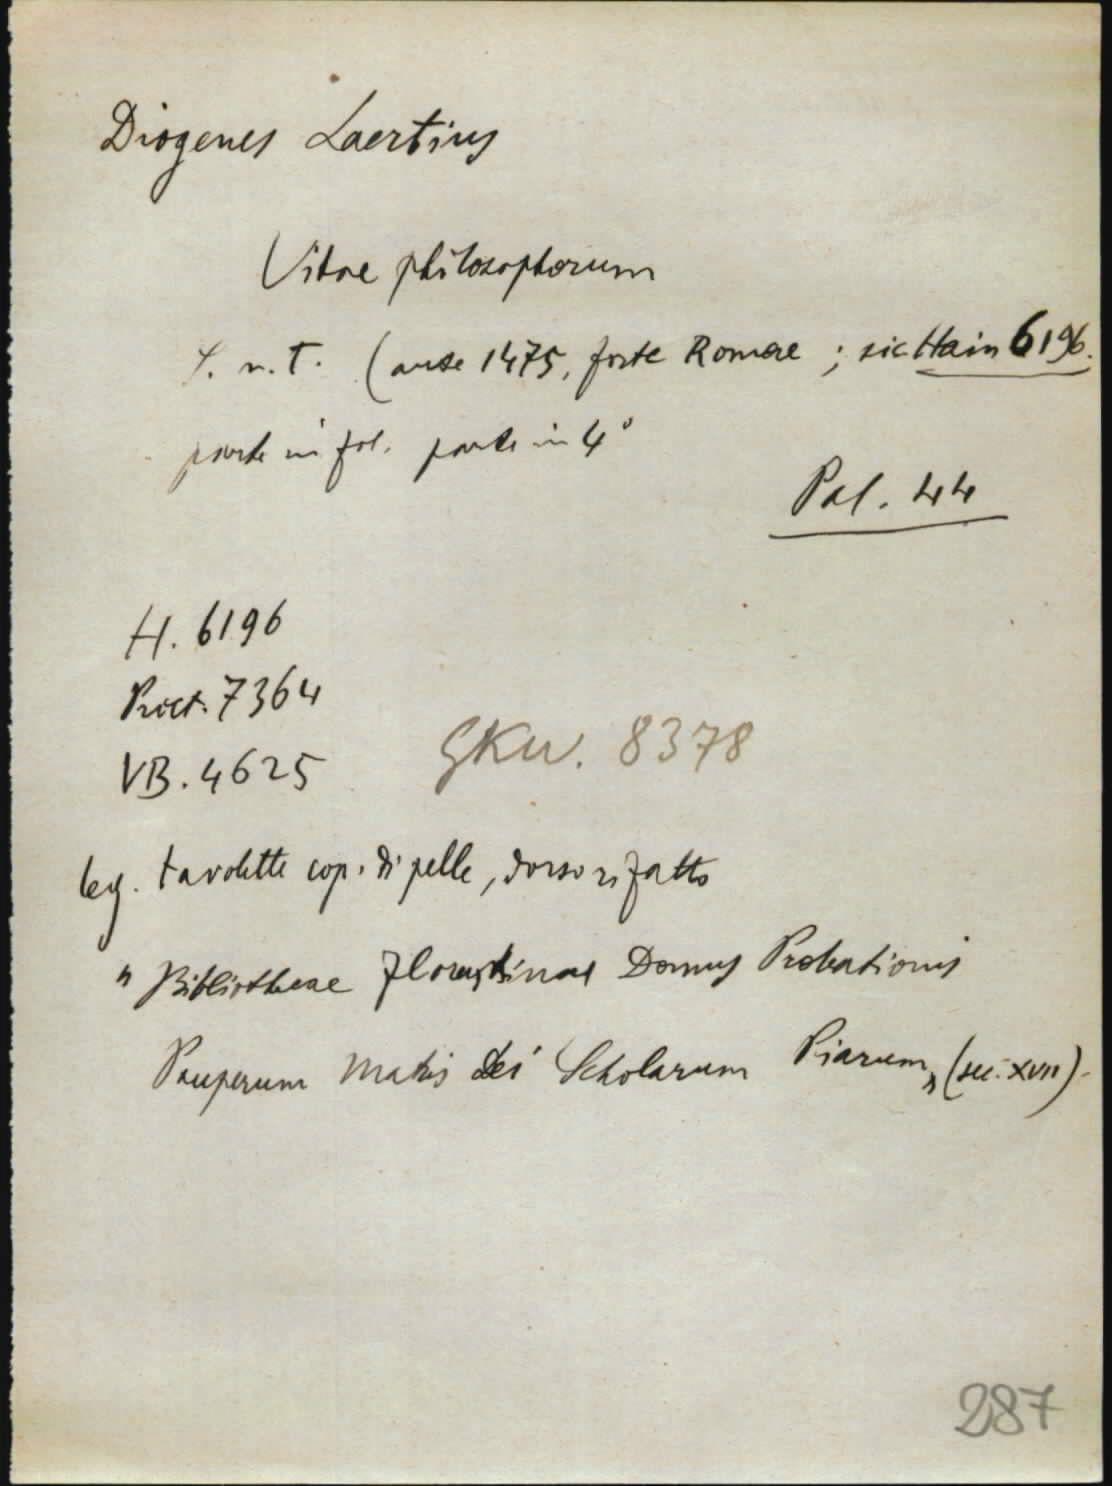 Diogenes Laertius
Vitae philosophorum
S. n. T. (ante 1475, forte Romae ; sic Hain 6196.
parte in fol. parte in 4°
Pal. 44
H. 6196
Proct. 7364
VB. 4625
GKW. 8378
leg. tavolette cop. di pelle, dorso rifatto
" Bibliothecae Florentinae Domus Probationis
Pauperum Matris Dei Scholarum Piarum „ (sec. XVII).
287